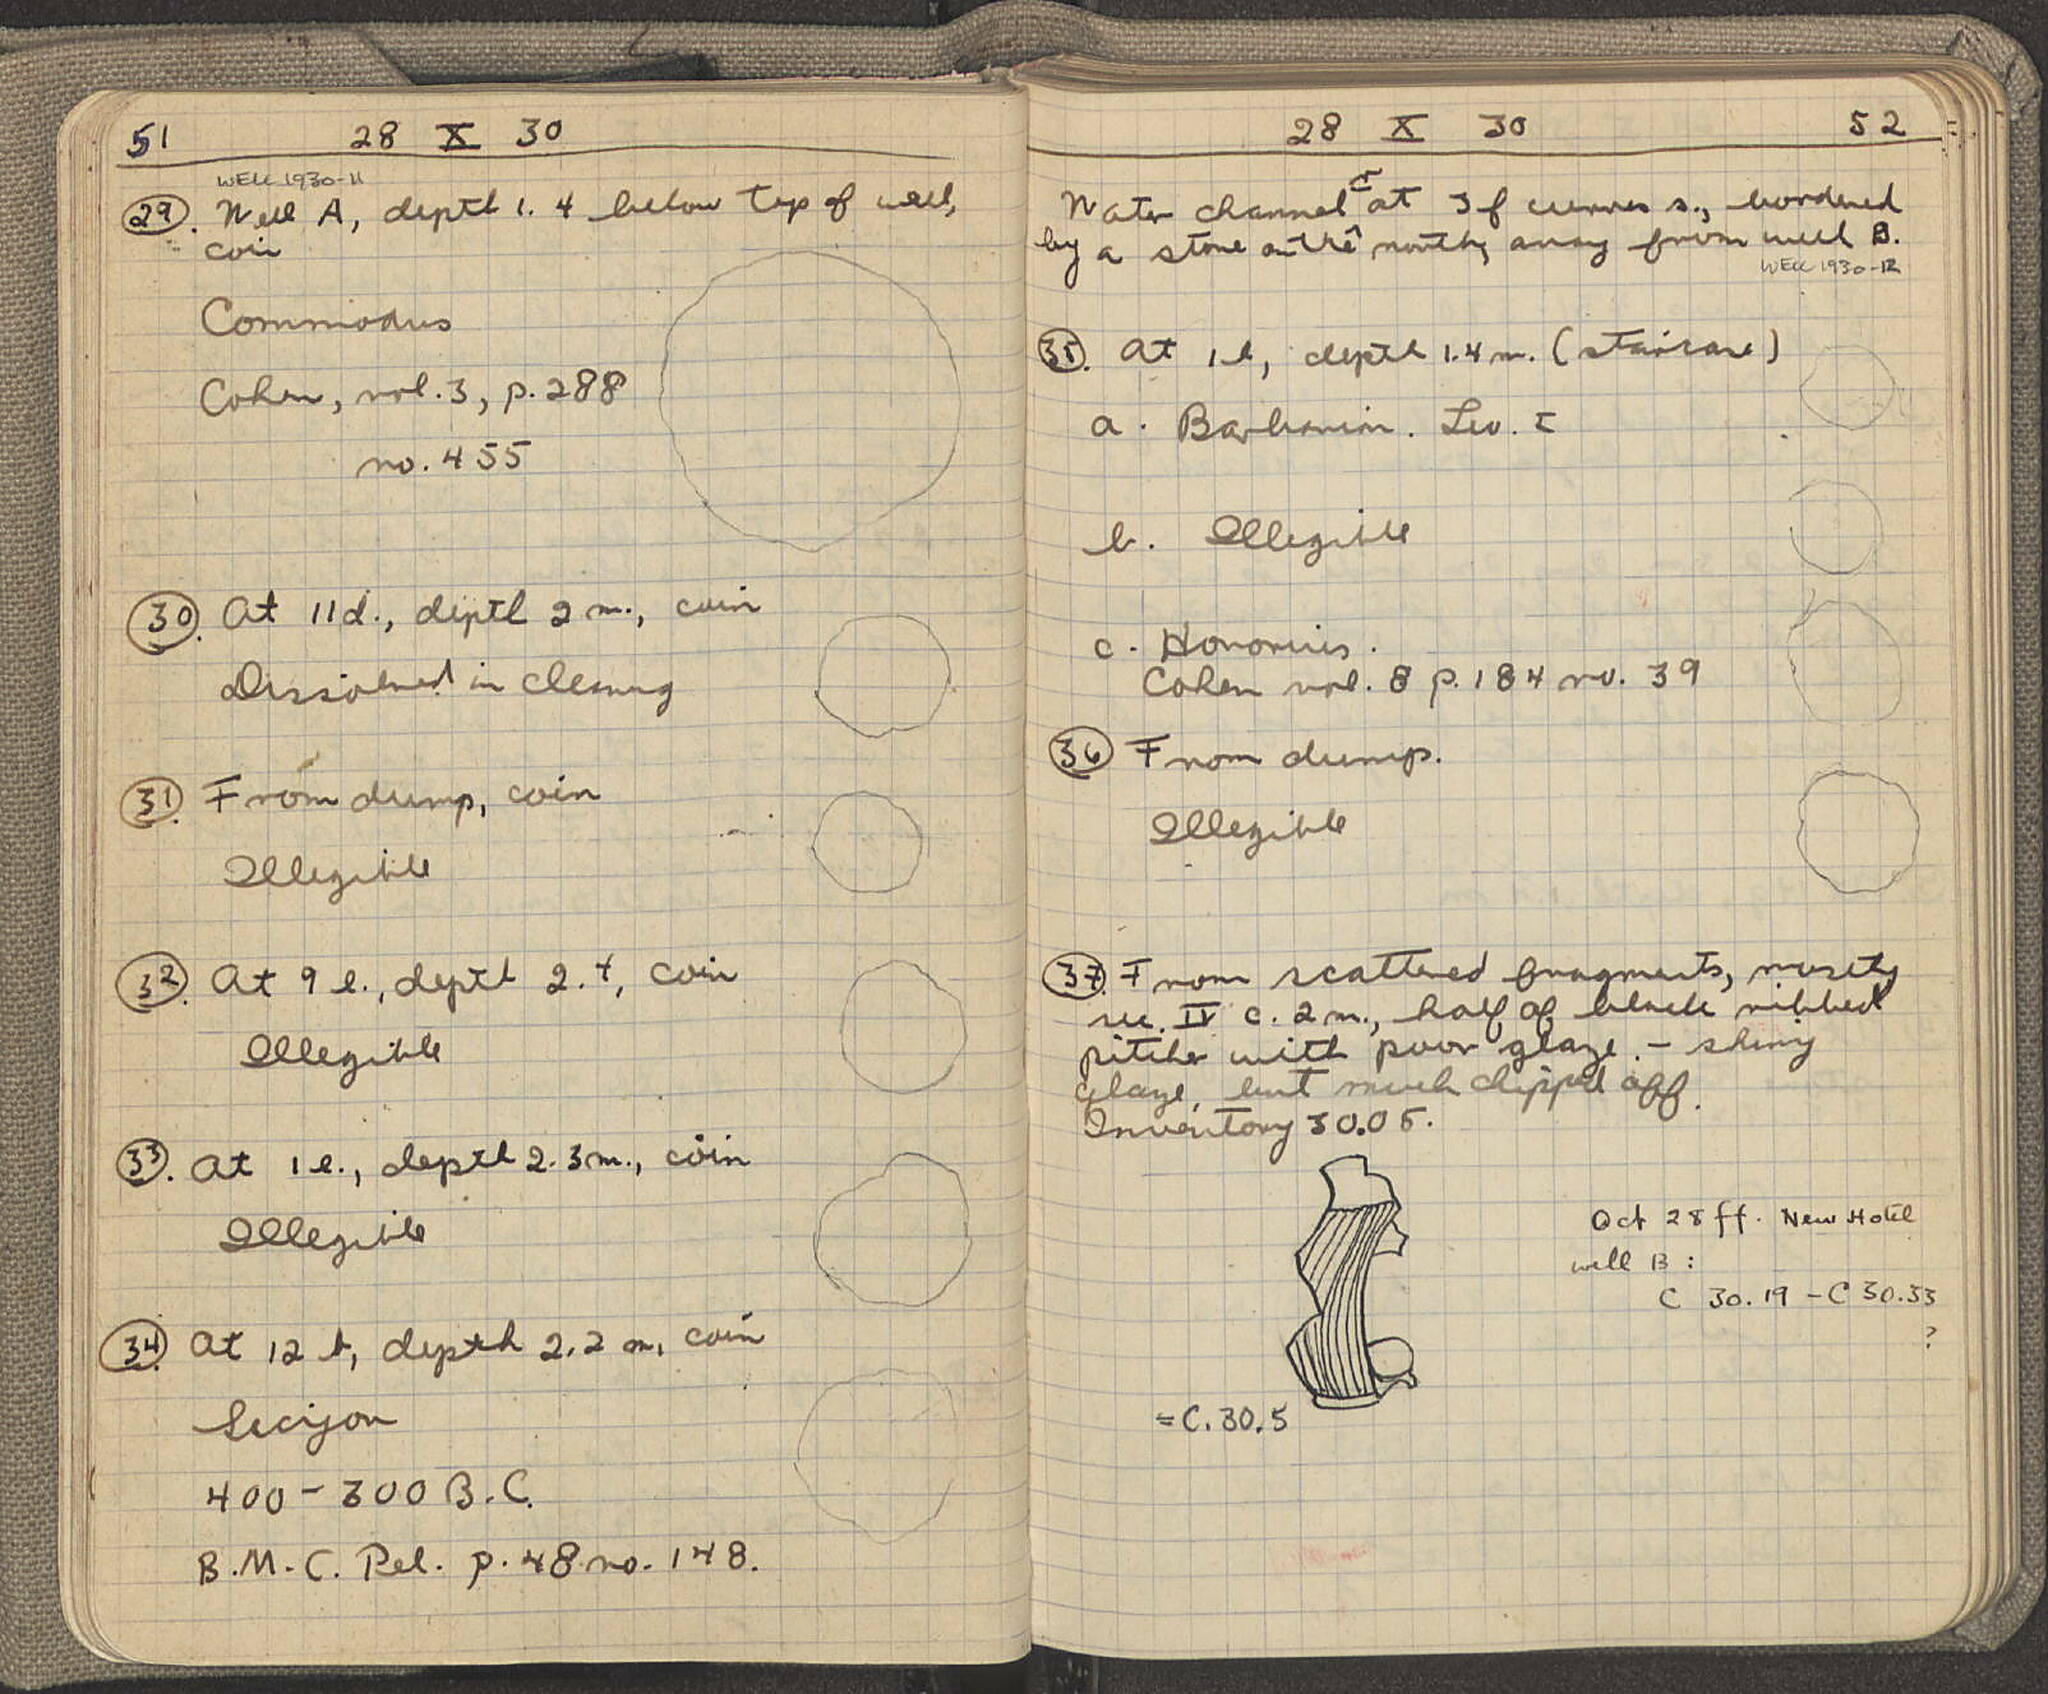 51 28 X 30
WELL 1930-11
29. Well A, depth 1.4 below top of well,
coin
Commodus
Cohen, vol. 3, p. 288
no. 455
30. At 11 d., depth 2 m., coin
Dissolved in cleaning
31. From dump, coin
Illegible
32. At 9 e., depth 2.4, coin
Illegible
33. At 1 e., depth 2.3 m., coin
Illegible
34. At 12 b, depth 2.2 m, coin
Sicyon
400 - 300 B.C.
B.M.C. Pel. p. 48 no. 148.
28 X 30 52
Water channel at 3 f curves s., bordered
by a stone on the north, away from well B.
WELL 1930-12
35. At 1 b, depth 1.4 m. (staircase)
a. Barbarian. Leo. I
b. Illegible
c. Honorius.
Cohen vol. 8 p. 184 no. 39
36 From dump.
Illegible
37. From scattered fragments, mostly
sec. II c. 2 m., half of black ribbed
pitcher with poor glaze. - shiny
glaze, but much chipped off.
Inventory 30.05.
Oct 28 ff. New Hotel
well B :
C 30.19 - C 30.33
?
= C. 30.5